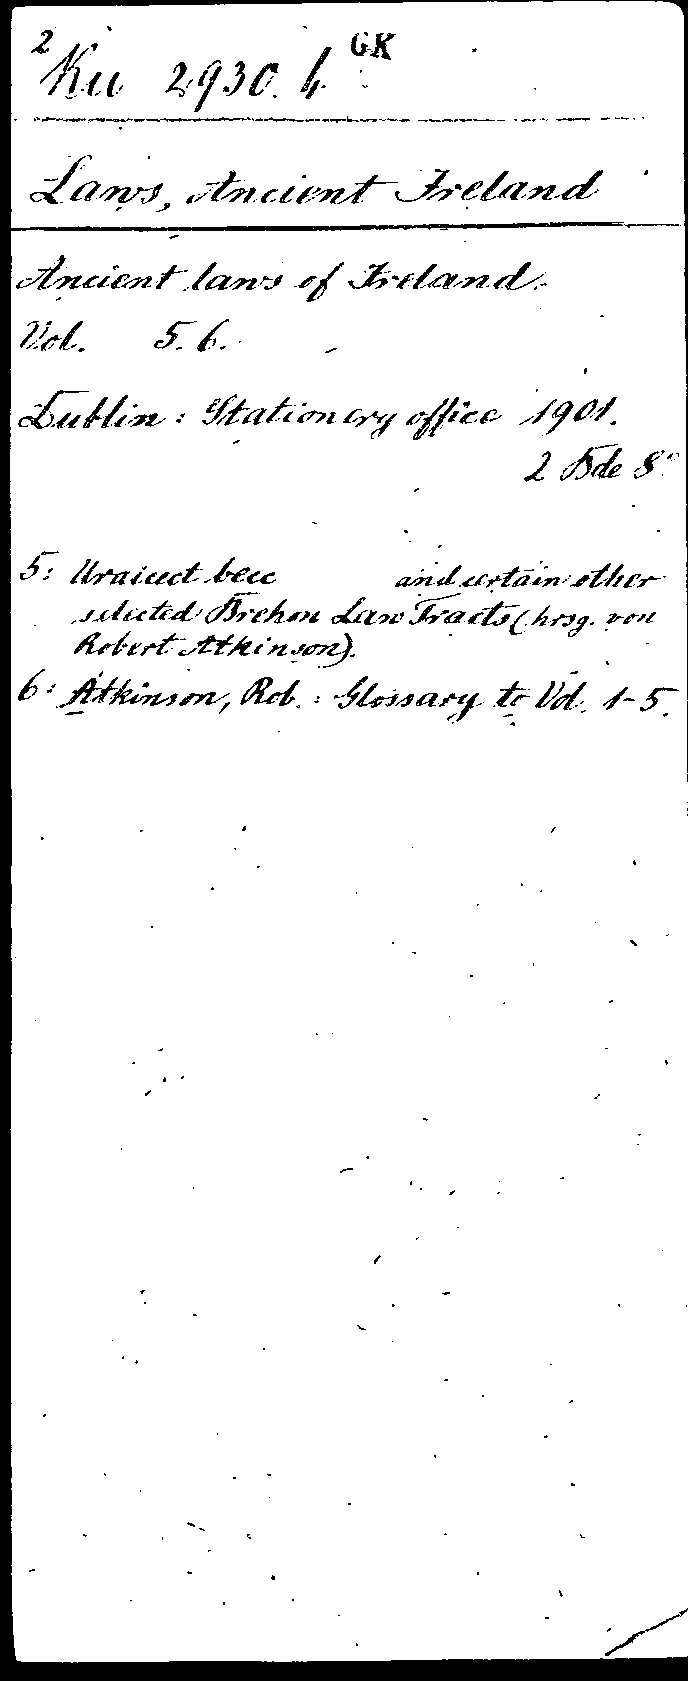 2 GK
Ku 2930. 4
Laws, Ancient Ireland
Ancient laws of Ireland.
Vol. 5. 6.
Dublin: Stationery office 1901.
2 Bde 8°
5: Uraicect becc and certain other
selected Brehon Law Tracts (hrsg. von
Robert Atkinson).
6: Atkinson, Rob.: Glossary to Vol. 1-5.